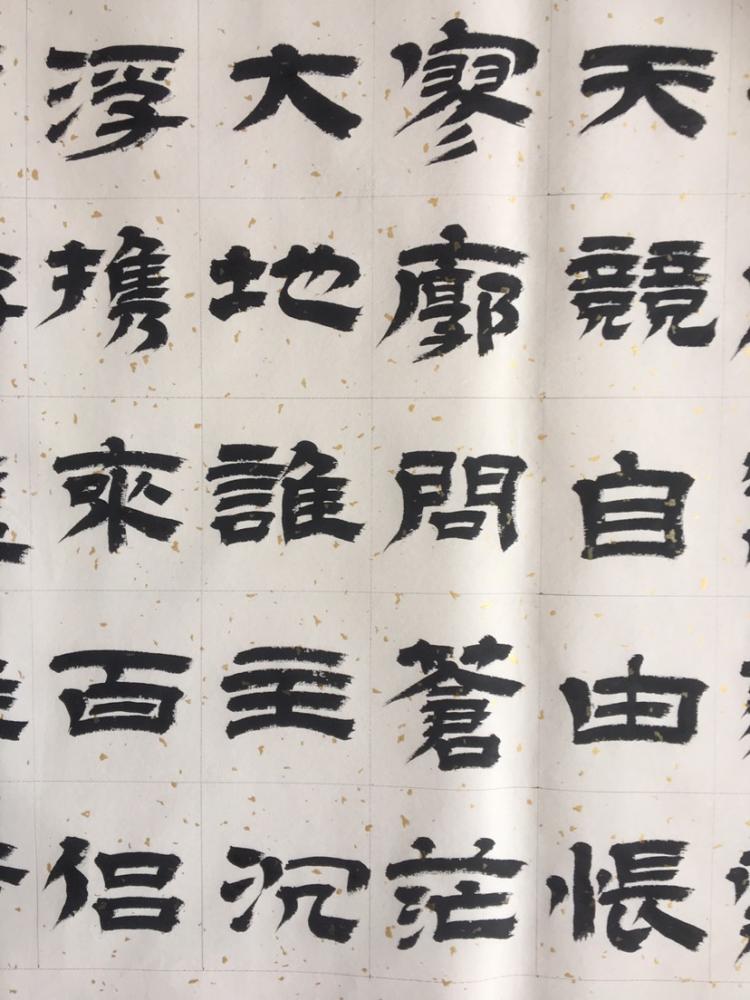 天競自由悵
寥廓問蒼茫
大地誰主沉
浮携來百侶